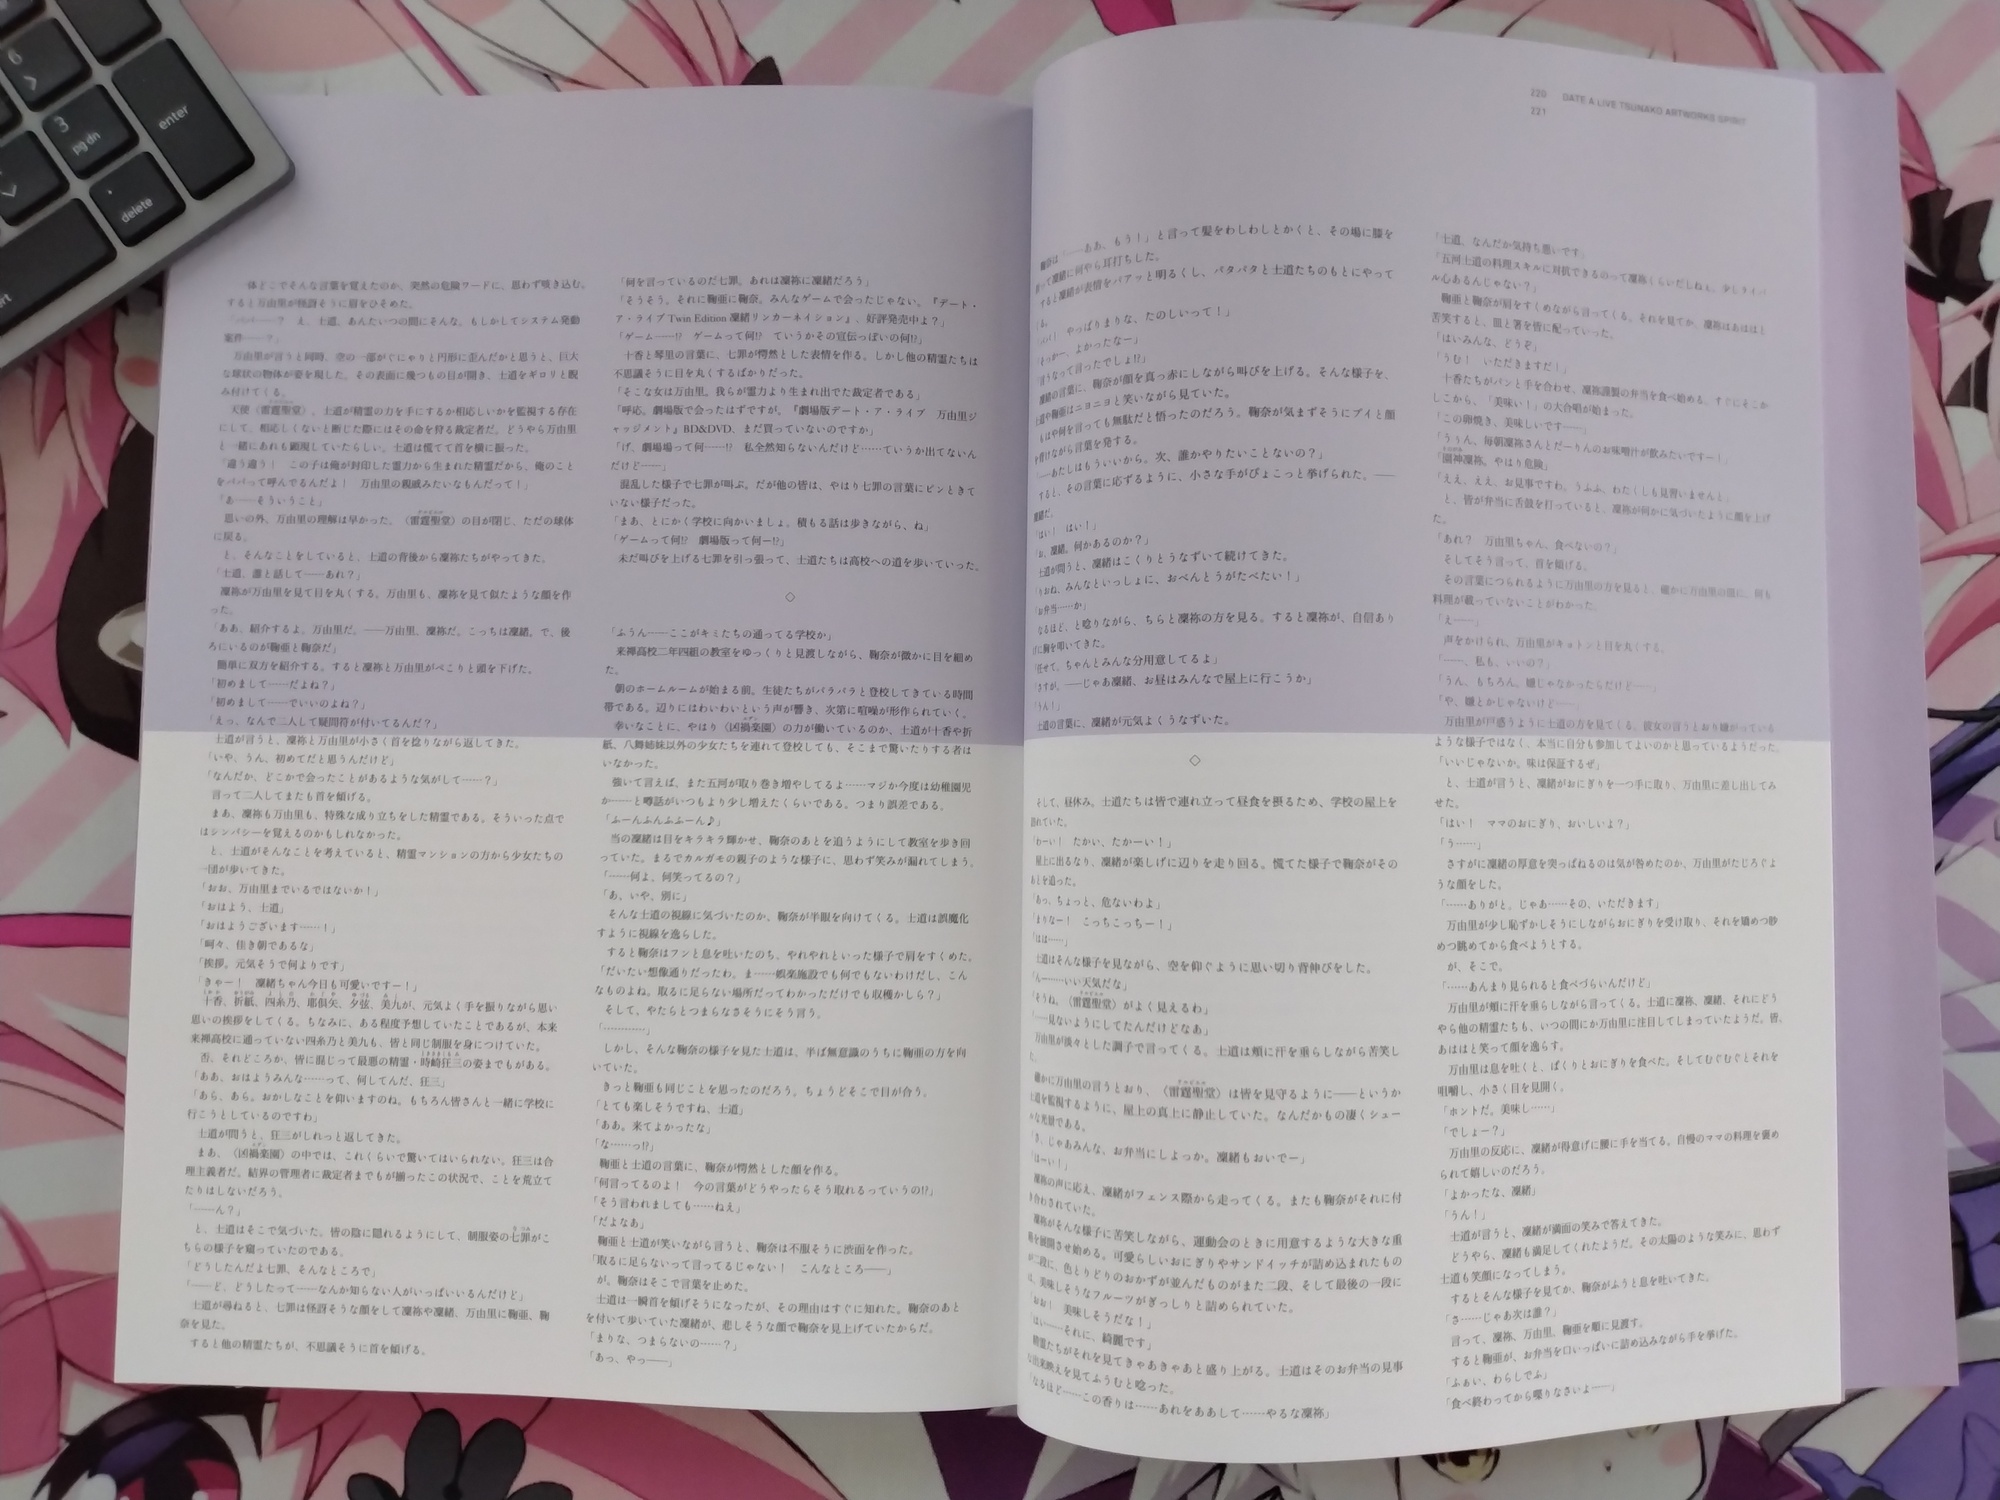 6
3
pg dn
enter
delete
220 DATE A LIVE TSUNAKO ARTWORKS SPIRIT
221
一体どこでそんな言葉を覚えたのか、突然の危険ワードに、思わず咳き込む。
すると万由里が怪訝そうに眉をひそめた。
「パパ――? え、士道、あんたいつの間にそんな。もしかしてシステム発動
案件――?」
万由里が言うと同時、空の一部がぐにゃりと円形に歪んだかと思うと、巨大
な球状の物体が姿を現した。その表面に幾つもの目が開き、士道をギロリと睨
み付けてくる。
天使〈雷霆聖堂〉。士道が精霊の力を手にするか相応しいかを監視する存在
にして、相応しくないと断じた際にはその命を狩る裁定者だ。どうやら万由里
と一緒にあれも顕現していたらしい。士道は慌てて首を横に振った。
「違う違う! この子は俺が封印した霊力から生まれた精霊だから、俺のこと
をパパって呼んでるんだよ! 万由里の親戚みたいなもんだって!」
「あ――そういうこと」
思いの外、万由里の理解は早かった。〈雷霆聖堂〉の目が閉じ、ただの球体
に戻る。
と、そんなことをしていると、士道の背後から凜祢たちがやってきた。
「士道、誰と話して――あれ?」
凜祢が万由里を見て目を丸くする。万由里も、凜祢を見て似たような顔を作
った。
「ああ、紹介するよ。万由里だ。――万由里、凜祢だ。こっちは凜緒。で、後
ろにいるのが鞠亜と鞠奈だ」
簡単に双方を紹介する。すると凜祢と万由里がぺこりと頭を下げた。
「初めまして――だよね?」
「初めまして――でいいのよね?」
「えっ、なんで二人して疑問符が付いてるんだ?」
士道が言うと、凜祢と万由里が小さく首を捻りながら返してきた。
「いや、うん、初めてだと思うんだけど」
「なんだか、どこかで会ったことがあるような気がして……?」
言って二人してまたも首を傾げる。
まあ、凜祢も万由里も、特殊な成り立ちをした精霊である。そういった点で
はシンパシーを覚えるのかもしれなかった。
と、士道がそんなことを考えていると、精霊マンションの方から少女たちの
一団が歩いてきた。
「おお、万由里までいるではないか!」
「おはよう、士道」
「おはようございます……!」
「呵々、佳き朝であるな」
「挨拶。元気そうで何よりです」
「きゃー! 凜緒ちゃん今日も可愛いですー!」
十香、折紙、四糸乃、耶俱矢、夕弦、美九が、元気よく手を振りながら思い
思いの挨拶をしてくる。ちなみに、ある程度予想していたことであるが、本来
来禅高校に通っていない四糸乃と美九も、皆と同じ制服を身につけていた。
否、それどころか、皆に混じって最悪の精霊・時崎狂三の姿までもがある。
「ああ、おはようみんな……って、何してんだ、狂三」
「あら、あら。おかしなことを仰いますのね。もちろん皆さんと一緒に学校に
行こうとしているのですわ」
士道が問うと、狂三がしれっと返してきた。
まあ、〈凶禍楽園〉の中では、これくらいで驚いてはいられない。狂三は合
理主義者だ。結界の管理者に裁定者までもが揃ったこの状況で、ことを荒立て
たりはしないだろう。
「――ん?」
と、士道はそこで気づいた。皆の陰に隠れるようにして、制服姿の七罪がこ
ちらの様子を窺っていたのである。
「どうしたんだよ七罪、そんなところで」
「――ど、どうしたって――なんか知らない人がいっぱいいるんだけど」
士道が尋ねると、七罪は怪訝そうな顔をして凜祢や凜緒、万由里に鞠亜、鞠
奈を見た。
すると他の精霊たちが、不思議そうに首を傾げる。
「何を言っているのだ七罪。あれは凜祢に凜緒だろう」
「そうそう。それに鞠亜に鞠奈。みんなゲームで会ったじゃない。『デート・
ア・ライブ Twin Edition 凜緒リンカーネイション』、好評発売中よ?」
「ゲーム――!? ゲームって何!? ていうかその宣伝っぽいの何!?」
十香と琴里の言葉に、七罪が愕然とした表情を作る。しかし他の精霊たちは
不思議そうに目を丸くするばかりだった。
「そこな女は万由里。我らが霊力より生まれ出でた裁定者である」
「呼応。劇場版で会ったはずですが。『劇場版デート・ア・ライブ 万由里ジ
ャッジメント』BD&DVD、まだ買っていないのですか」
「げ、劇場場って何――!? 私全然知らないんだけど……ていうか出てないん
だけど――」
混乱した様子で七罪が叫ぶ。だが他の皆は、やはり七罪の言葉にピンときて
いない様子だった。
「まあ、とにかく学校に向かいましょ。積もる話は歩きながら、ね」
「ゲームって何!? 劇場版って何ー!?」
未だ叫びを上げる七罪を引っ張って、士道たちは高校への道を歩いていった。
◇
「ふうん――ここがキミたちの通ってる学校か」
来禅高校二年四組の教室をゆっくりと見渡しながら、鞠奈が微かに目を細め
た。
朝のホームルームが始まる前。生徒たちがパラパラと登校してきている時間
帯である。辺りにはわいわいという声が響き、次第に喧噪が形作られていく。
幸いなことに、やはり〈凶禍楽園〉の力が働いているのか、士道が十香や折
紙、八舞姉妹以外の少女たちを連れて登校しても、そこまで驚いたりする者は
いなかった。
強いて言えば、また五河が取り巻き増やしてるよ……マジか今度は幼稚園児
か――と噂話がいつもより少し増えたくらいである。つまり誤差である。
「ふーんふんふふーん♪」
当の凜緒は目をキラキラ輝かせ、鞠奈のあとを追うようにして教室を歩き回
っていた。まるでカルガモの親子のような様子に、思わず笑みが漏れてしまう。
「――何よ、何笑ってるの?」
「あ、いや、別に」
そんな士道の視線に気づいたのか、鞠奈が半眼を向けてくる。士道は誤魔化
すように視線を逸らした。
すると鞠奈はフンと息を吐いたのち、やれやれといった様子で肩をすくめた。
「だいたい想像通りだったわ。ま――娯楽施設でも何でもないわけだし、こん
なものよね。取るに足らない場所だってわかっただけでも収穫かしら?」
そして、やたらとつまらなさそうにそう言う。
「…………」
しかし、そんな鞠奈の様子を見た士道は、半ば無意識のうちに鞠亜の方を向
いていた。
きっと鞠亜も同じことを思ったのだろう。ちょうどそこで目が合う。
「とても楽しそうですね、士道」
「ああ。来てよかったな」
「な……っ!?」
鞠亜と士道の言葉に、鞠奈が愕然とした顔を作る。
「何言ってるのよ! 今の言葉がどうやったらそう取れるっていうの!?」
「そう言われましても……ねえ」
「だよなあ」
鞠亜と士道が笑いながら言うと、鞠奈は不服そうに渋面を作った。
「取るに足らないって言ってるじゃない! こんなところ――」
が、鞠奈はそこで言葉を止めた。
士道は一瞬首を傾げそうになったが、その理由はすぐに知れた。鞠奈のあと
を付いて歩いていた凜緒が、悲しそうな顔で鞠奈を見上げていたからだ。
「まりな、つまらないの……?」
「あっ、やっ――」
鞠奈は「――ああ、もう!」と言って髪をわしわしとかくと、その場に膝を
って凜緒に何やら耳打ちした。
すると凜緒が表情をパアッと明るくし、パタパタと士道たちのもとにやって
る。
「パパ! やっぱりまりな、たのしいって!」
「そっかー、よかったなー」
「言うなって言ったでしょ!?」
凜緒の言葉に、鞠奈が顔を真っ赤にしながら叫びを上げる。そんな様子を、
士道や鞠亜はニヨニヨと笑いながら見ていた。
もはや何を言っても無駄だと悟ったのだろう。鞠奈が気まずそうにプイと顔
を背けながら言葉を発する。
「――あたしはもういいから。次、誰かやりたいことないの?」
すると、その言葉に応ずるように、小さな手がぴょこっと挙げられた。――
凜緒だ。
「はい! はい!」
「お、凜緒。何かあるのか?」
士道が問うと、凜緒はこくりとうなずいて続けてきた。
「りおね、みんなといっしょに、おべんとうがたべたい!」
「お弁当――か」
なるほど、と唸りながら、ちらと凜祢の方を見る。すると凜祢が、自信あり
げに胸を叩いてきた。
「任せて。ちゃんとみんな分用意してるよ」
「さすが。――じゃあ凜緒、お昼はみんなで屋上に行こうか」
「うん!」
士道の言葉に、凜緒が元気よくうなずいた。
◇
そして、昼休み。士道たちは皆で連れ立って昼食を摂るため、学校の屋上を
訪れていた。
「わーい! たかい、たかーい!」
屋上に出るなり、凜緒が楽しげに辺りを走り回る。慌てた様子で鞠奈がその
あとを追った。
「あっ、ちょっと、危ないわよ」
「まりなー! こっちこっちー!」
「はは……」
士道はそんな様子を見ながら、空を仰ぐように思い切り背伸びをした。
「んー……いい天気だな」
「そうね。〈雷霆聖堂〉がよく見えるわ」
「――見ないようにしてたんだけどなあ」
万由里が淡々とした調子で言ってくる。士道は頬に汗を垂らしながら苦笑し
た。
確かに万由里の言うとおり、〈雷霆聖堂〉は皆を見守るように――というか
士道を監視するように、屋上の真上に静止していた。なんだかもの凄くシュー
ルな光景である。
「さ、じゃあみんな、お弁当にしよっか。凜緒もおいでー」
「はーい!」
凜祢の声に応え、凜緒がフェンス際から走ってくる。またも鞠奈がそれに付
き合わされていた。
凜祢がそんな様子に苦笑しながら、運動会のときに用意するような大きな重
箱を展開させ始める。可愛らしいおにぎりやサンドイッチが詰め込まれたもの
が二段に、色とりどりのおかずが並んだものがまた二段、そして最後の一段に
は、美味しそうなフルーツがぎっしりと詰められていた。
「おお! 美味しそうだな!」
「はい――それに、綺麗です」
精霊たちがそれを見てきゃあきゃあと盛り上がる。士道はそのお弁当の見事
な出来映えを見てふうむと唸った。
「なるほど――この香りは……あれをああして……やるな凜祢」
「士道、なんだか気持ち悪いです」
「五河士道の料理スキルに対抗できるのって凜祢くらいだしねぇ。少しライバ
ル心あるんじゃない?」
鞠亜と鞠奈が肩をすくめながら言ってくる。それを見てか、凜祢はあははと
苦笑すると、皿と箸を皆に配っていった。
「はいみんな、どうぞ」
「うむ! いただきますだ!」
十香たちがパンと手を合わせ、凜祢謹製の弁当を食べ始める。すぐにそこか
しこから、「美味い!」の大合唱が始まった。
「この卵焼き、美味しいです――」
「うぅん、毎朝凜祢さんとだーりんのお味噌汁が飲みたいですー!」
「園神凜祢。やはり危険」
「ええ、ええ、お見事ですわ。うふふ、わたくしも見習いませんと」
と、皆が弁当に舌鼓を打っていると、凜祢が何かに気づいたように顔を上げ
た。
「あれ? 万由里ちゃん、食べないの?」
そしてそう言って、首を傾げる。
その言葉につられるように万由里の方を見ると、確かに万由里の皿に、何も
料理が載っていないことがわかった。
「え――」
声をかけられ、万由里がキョトンと目を丸くする。
「――、私も、いいの?」
「うん、もちろん。嫌じゃなかったらだけど――」
「や、嫌とかじゃないけど――」
万由里が戸惑うように士道の方を見てくる。彼女の言うとおり嫌がっている
ような様子ではなく、本当に自分も参加してよいのかと思っているようだった。
「いいじゃないか。味は保証するぜ」
と、士道が言うと、凜緒がおにぎりを一つ手に取り、万由里に差し出してみ
せた。
「はい! ママのおにぎり、おいしいよ?」
「う……」
さすがに凜緒の厚意を突っぱねるのは気が咎めたのか、万由里がたじろぐよ
うな顔をした。
「……ありがと。じゃあ……その、いただきます」
万由里が少し恥ずかしそうにしながらおにぎりを受け取り、それを矯めつ眇
めつ眺めてから食べようとする。
が、そこで。
「……あんまり見られると食べづらいんだけど」
万由里が頬に汗を垂らしながら言ってくる。士道に凜祢、凜緒、それにどう
やら他の精霊たちも、いつの間にか万由里に注目してしまっていたようだ。皆、
あははと笑って顔を逸らす。
万由里は息を吐くと、ぱくりとおにぎりを食べた。そしてむぐむぐとそれを
咀嚼し、小さく目を見開く。
「ホントだ。美味し……」
「でしょー?」
万由里の反応に、凜緒が得意げに腰に手を当てる。自慢のママの料理を褒め
られて嬉しいのだろう。
「よかったな、凜緒」
「うん!」
士道が言うと、凜緒が満面の笑みで答えてきた。
どうやら、凜緒も満足してくれたようだ。その太陽のような笑みに、思わず
士道も笑顔になってしまう。
するとそんな様子を見てか、鞠奈がふうと息を吐いてきた。
「さ――じゃあ次は誰?」
言って、凜祢、万由里、鞠亜を順に見渡す。
すると鞠亜が、お弁当を口いっぱいに詰め込みながら手を挙げた。
「ふぁい、わらしでふ」
「食べ終わってから喋りなさいよ――」